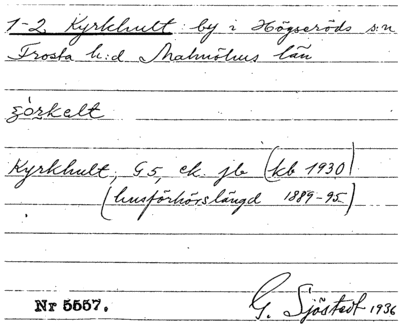 1-2 Kyrkhult by i Högseröds s:n
Frosta h:d Malmöhus län
Kyrkhult, G5, ek. jb (kb 1930)
(husförhörslängd 1889-95)
Nr 5557. G. Sjöstedt 1936